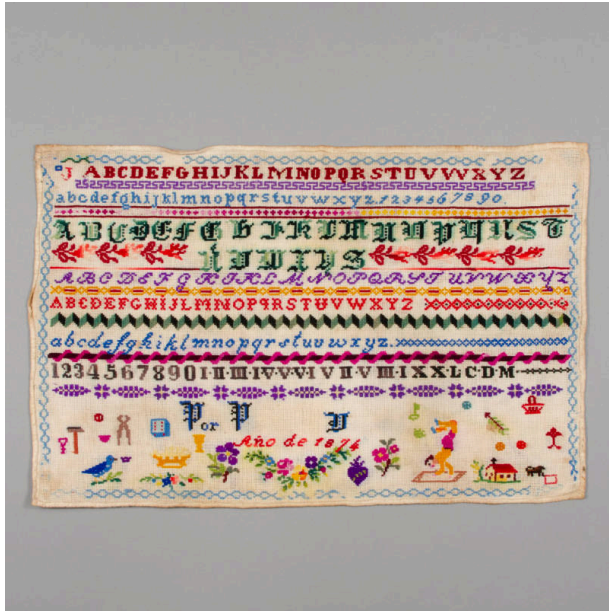 J ABCDEFGHIJKLMNOPQRSTUVWXYZ
abcdefghijklmnopqrstuvwxyz.1234567890.
ABCDEFGHIJKLMNOPQRST
UVWXYZ
ABCDEFGHIJKLMNOPQRSTUVWXYZ
ABCDEFGHIJLMNOPQRSTUVWXYZ
abcdefghijklmnopqrstuvwxyz.
1234567890I·II·III·IV·V·VI·V
Por P
Año de 1874